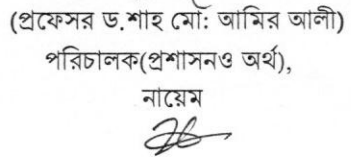 (প্রফেসর ড.শাহ মো: আমির আলী)
পরিচালক(প্রশাসনও অর্থ),
নায়েম